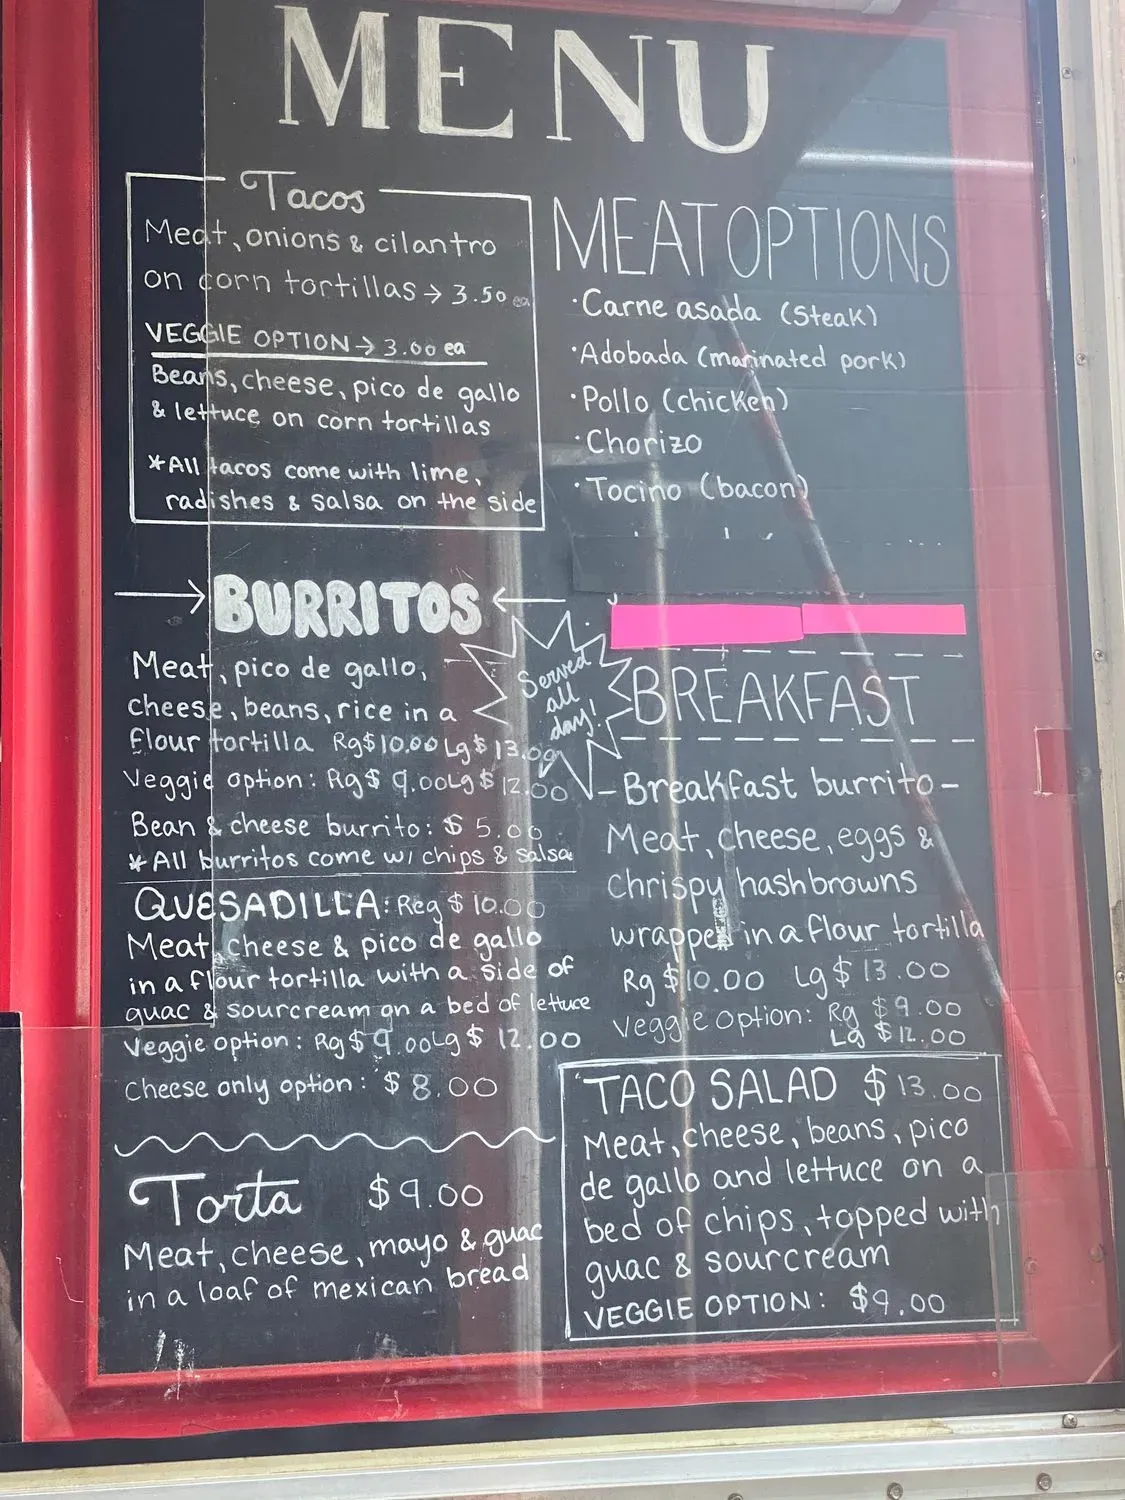 MENU
Tacos
Meat, onions & cilantro
on corn tortillas → 3.50 ea
VEGGIE OPTION → 3.00 ea
Beans, cheese, pico de gallo
& lettuce on corn tortillas
*All tacos come with lime,
radishes & salsa on the side
MEAT OPTIONS
·Carne asada (Steak)
·Adobada (marinated pork)
·Pollo (chicken)
·Chorizo
·Tocino (bacon)
→ BURRITOS ←
Meat, pico de gallo,
cheese, beans, rice in a
flour tortilla Rg$10.00 Lg$13.00
Veggie option: Rg$ 9.00 Lg$ 12.00
Bean & cheese burrito: $ 5.00
*All burritos come w/ chips & salsa
Served
all
day!
QUESADILLA: Reg $ 10.00
Meat, cheese & pico de gallo
in a flour tortilla with a side of
guac & sourcream on a bed of lettuce
Veggie option: Rg$ 9.00 Lg$ 12.00
Cheese only option: $ 8.00
Torta $9.00
Meat, cheese, mayo & guac
in a loaf of mexican bread
BREAKFAST
-Breakfast burrito-
Meat, cheese, eggs &
Chrispy hashbrowns
wrapped in a flour tortilla
Rg $10.00 Lg $13.00
Veggie option: Rg $9.00
Lg $12.00
TACO SALAD $13.00
Meat, cheese, beans, pico
de gallo and lettuce on a
bed of chips, topped with
guac & sourcream
VEGGIE OPTION: $9.00